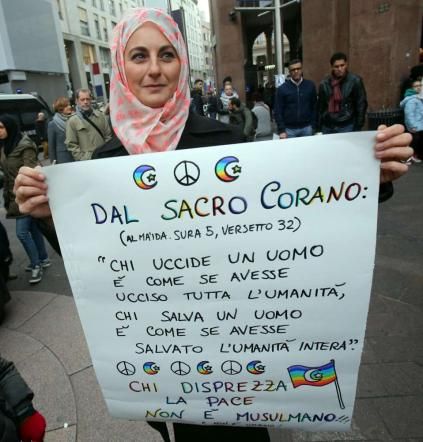 DAL SACRO CORANO:
(AL MAIDA. SURA 5, VERSETTO 32)
"CHI UCCIDE UN UOMO
É COME SE AVESSE
UCCISO TUTTA L'UMANITÀ,
CHI SALVA UN UOMO
É COME SE AVESSE
SALVATO L'UMANITÀ INTERA".
CHI DISPREZZA
LA PACE
NON É MUSULMANO!!!